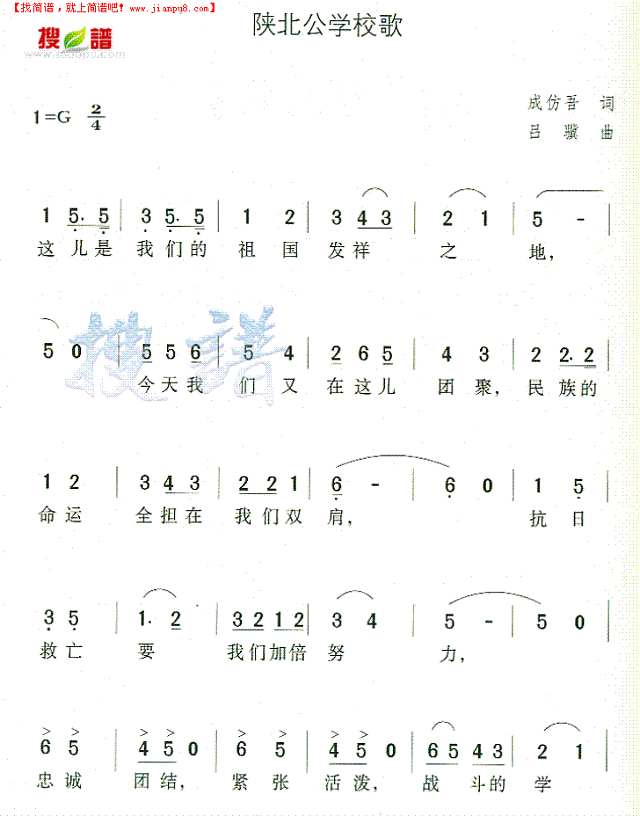 【找简谱,就上简谱吧!www.jianpu8.com】
搜谱
陕北公学校歌
成仿吾 词
1=G 2/4
吕 骥 曲
1 5. 5 | 3 5. 5 | 1 2 | 3 4 3 | 2 1 | 5 - |
这儿是 我们的 祖国发祥 之 地,
5 0 | 5 5 6 | 5 4 | 2 6 5 | 4 3 | 2 2. 2 |
今天我 们又在这儿 团聚, 民族的
1 2 | 3 4 3 | 2 2 1 | 6 - | 6 0 | 1 5 |
命运 全担在 我们双肩, 抗日
3 5 | 1. 2 | 3 2 1 2 | 3 4 | 5 - | 5 0 |
救亡 要 我们加倍努 力,
6 5 | 4 5 0 | 6 5 | 4 5 0 | 6 5 4 3 | 2 1 |
忠诚 团结, 紧张 活泼, 战斗的学
搜谱